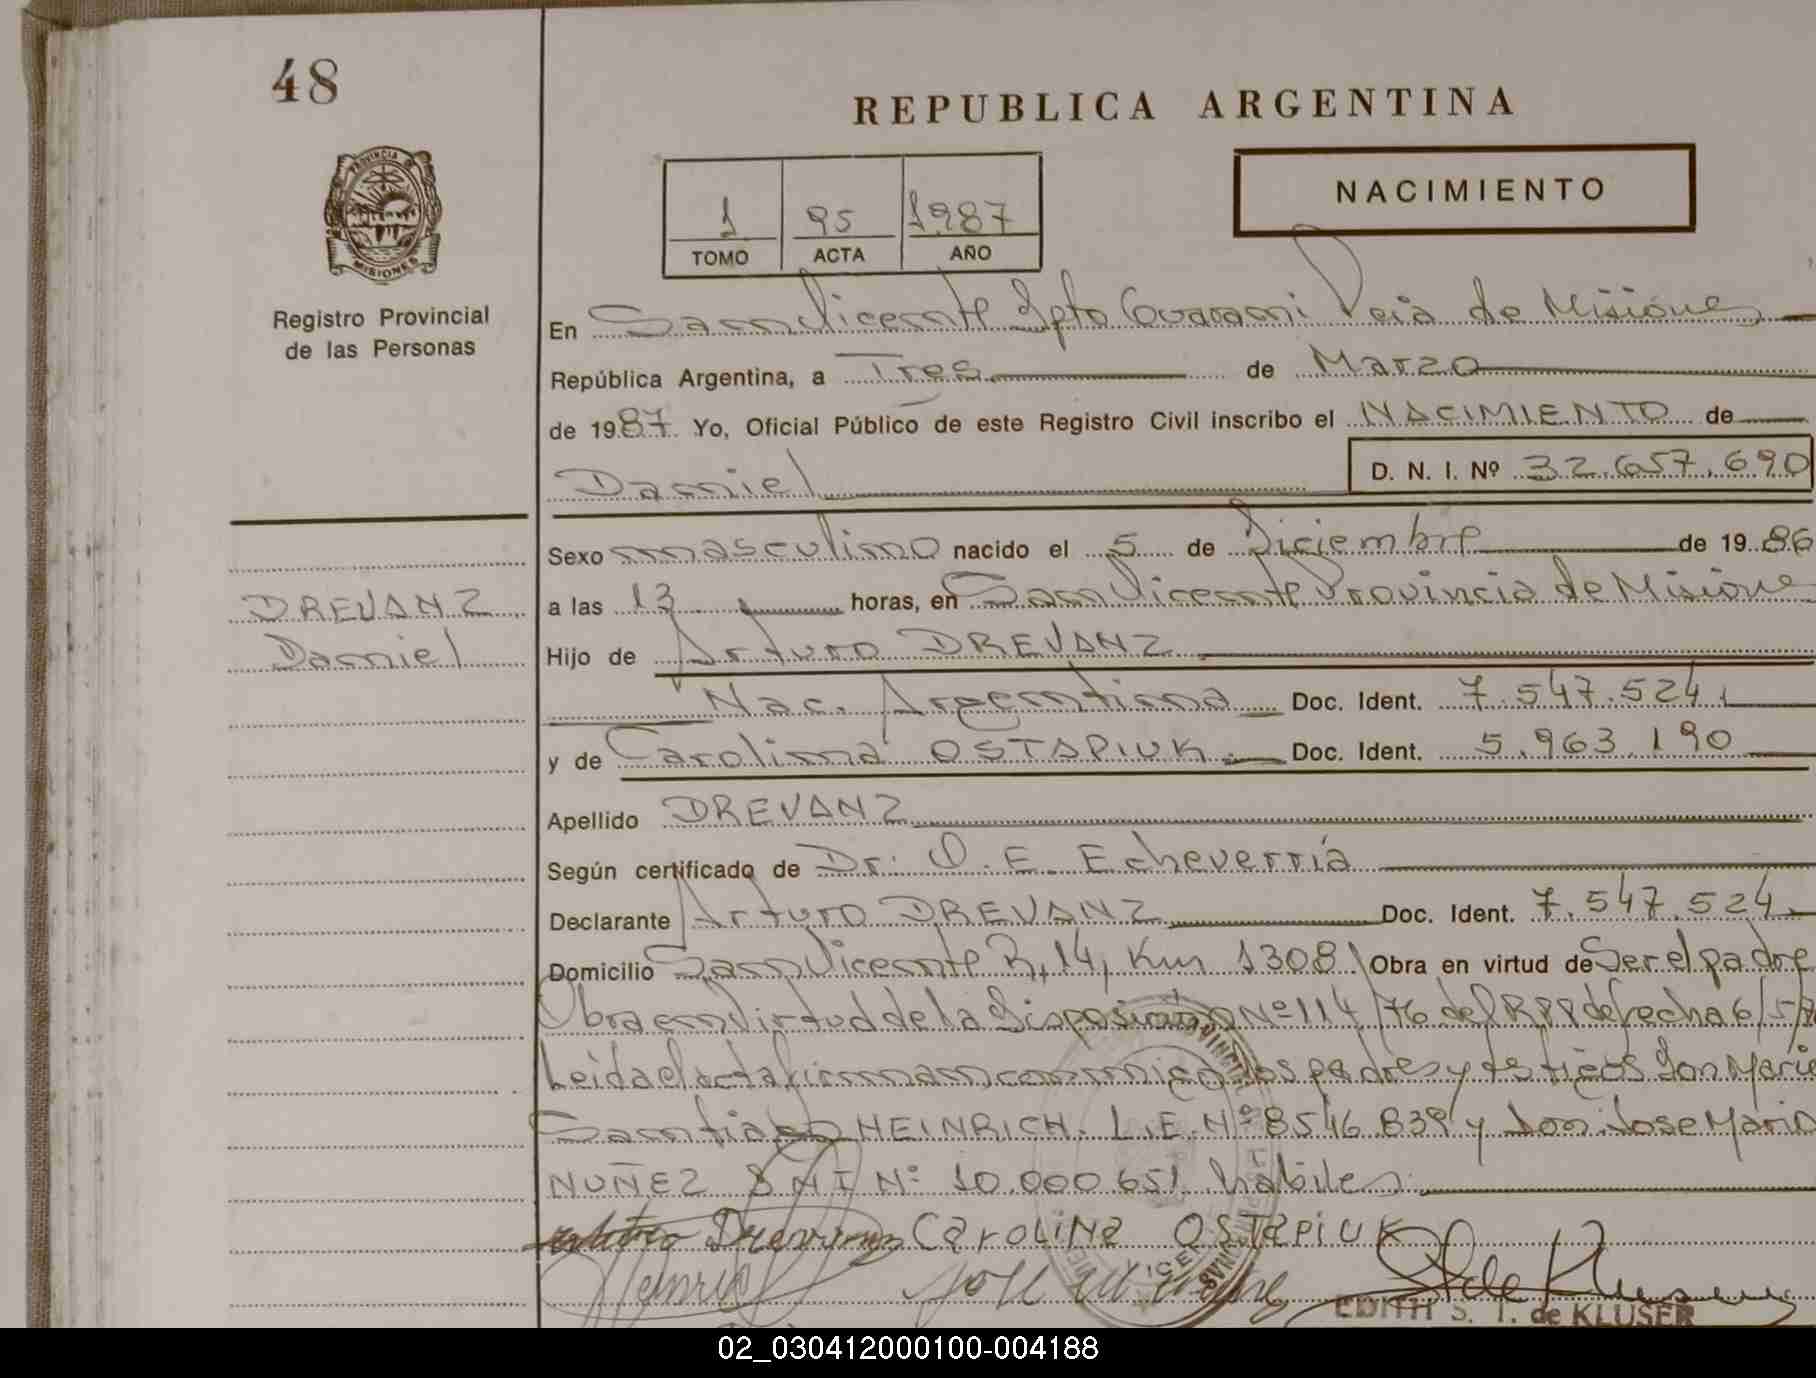 48
REPUBLICA ARGENTINA
PROVINCIA DE
MISIONES
Registro Provincial
de las Personas
1 95 1987
TOMO ACTA AÑO
NACIMIENTO
En San Vicente Dpto Guarani Pcia de Misiones
República Argentina, a Tres de Marzo
de 1987. Yo, Oficial Público de este Registro Civil inscribo el NACIMIENTO de
Daniel D. N. I. Nº 32.657.690
Sexo masculino nacido el 5 de Diciembre de 1986
DREVANZ
Daniel
a las 13 horas, en San Vicente Provincia de Misiones
Hijo de Arturo DREVANZ
Nac. Argentina Doc. Ident. 7.547.524
y de Carolina OSTAPIUK. Doc. Ident. 5.963.190
Apellido DREVANZ
Según certificado de Dr. O. E. Echeverría
Declarante Arturo DREVANZ Doc. Ident. 7.547.524.
Domicilio San Vicente R, 14, Km 1308 Obra en virtud de Ser el padre
Obra en virtud de la Disposición Nº 114/76 del RPP de fecha 6/5/
Leida el acta firman conmigo los padres y testigos Don Mario
Santiago HEINRICH. L.E. Nº 8546.839 y Don Jose Maria
NUÑEZ DNI Nº 10.000.651 habiles.
Arturo Drevanz CAROLINA OSTAPIUK
Heinrich
EDITH S. T. de KLUSER
02_030412000100-004188